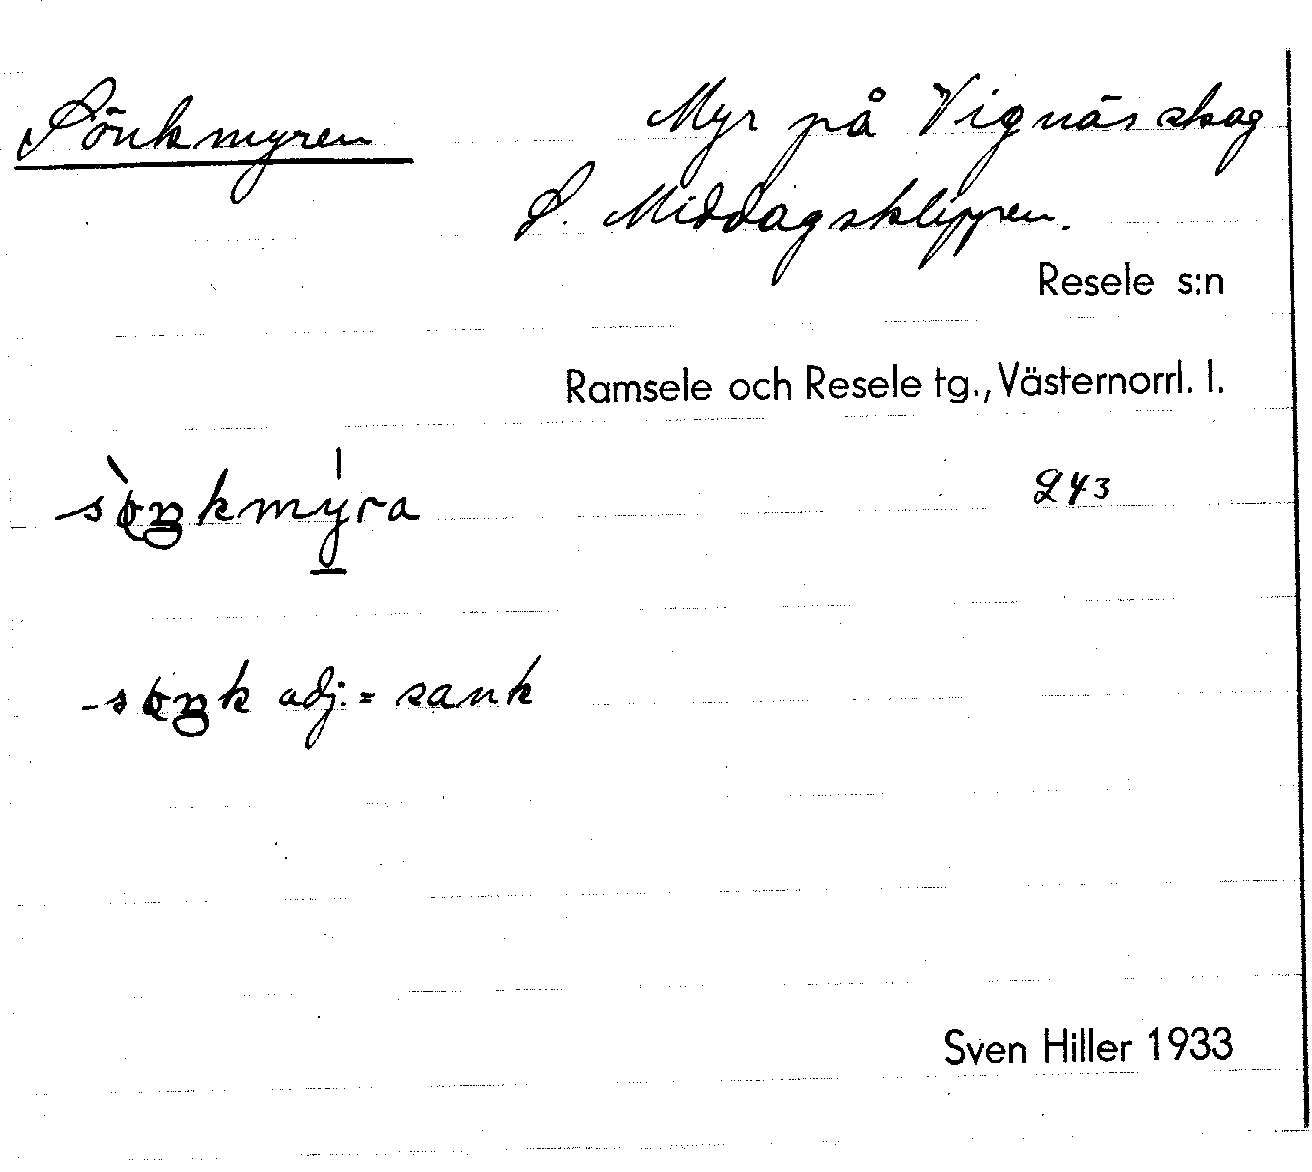 Sönkmyren
Myr på Vignäs skog
S. Middagsklippen.
Resele s:n
Ramsele och Resele tg., Västernorrl. l.
sö̀ŋkmýra
243
söŋk adj. = sank
Sven Hiller 1933